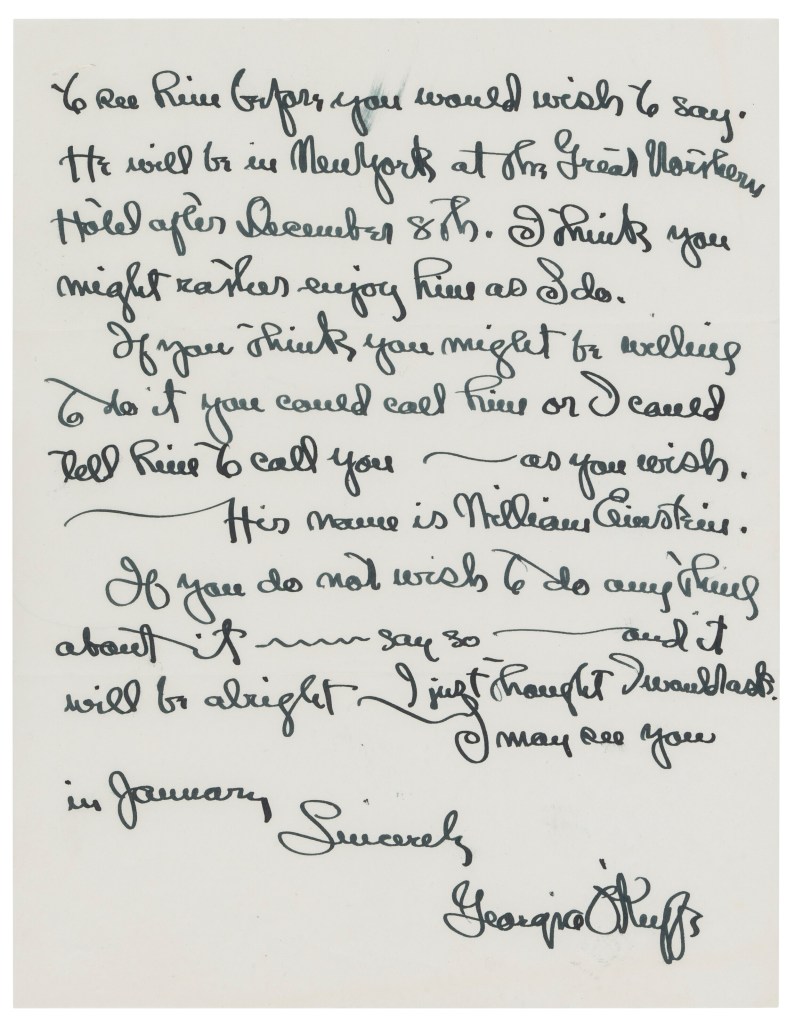 to see him before you would wish to say.
He will be in New York at the Great Northern
Hotel after December 8th. I think you
might rather enjoy him as I do.
If you think you might be willing
to do it you could call him or I could
tell him to call you — as you wish.
— His name is William Einstein.
If you do not wish to do anything
about it — say so — and it
will be alright — I just thought I would ask.
I may see you
in January
Sincerely
Georgia O'Keeffe